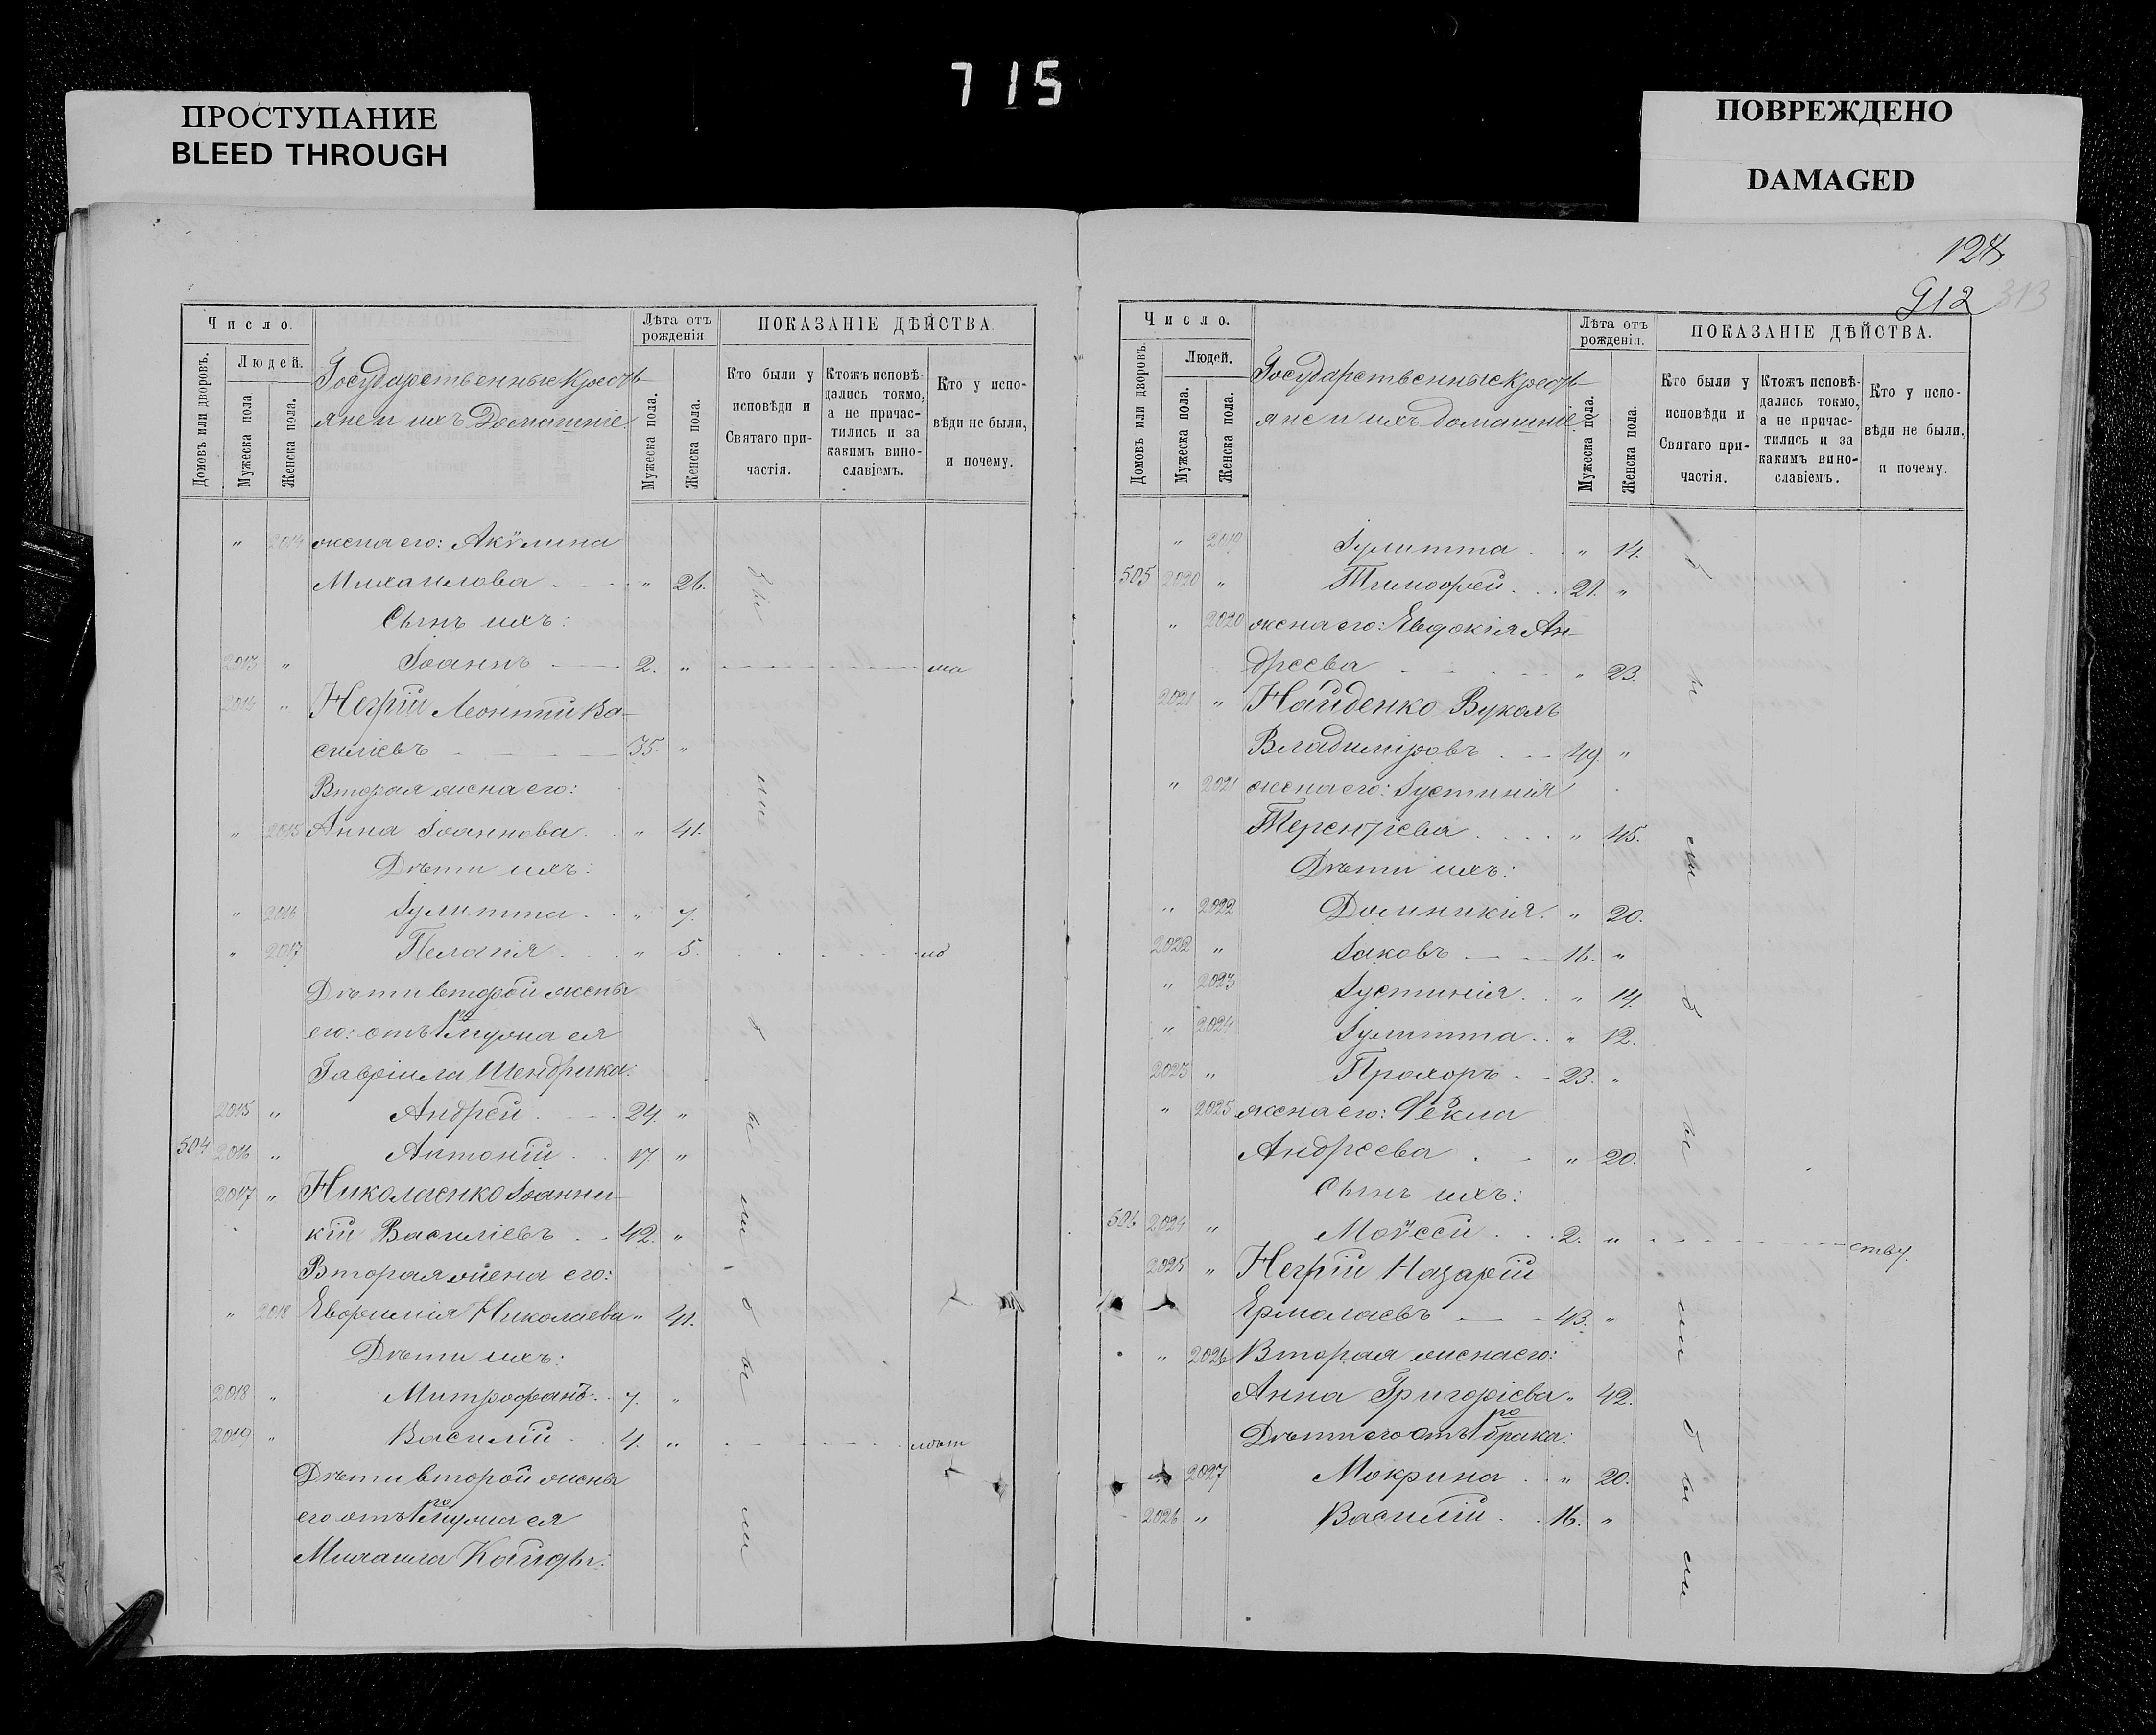 715
ПРОСТУПАНИЕ
BLEED THROUGH
ПОВРЕЖДЕНО
DAMAGED
Число.
Домовъ или дворовъ.
Людей.
Мужеска пола
Женска пола.
Государственные Кресть-
яне и ихъ Домашніе.
Лѣта отъ рожденія
Мужеска пола.
Женска пола.
ПОКАЗАНІЕ ДѢЙСТВА.
Кто были у исповѣди и Святаго причастія.
Ктожъ исповѣдались токмо, а не причастились и за какимъ винославіемъ.
Кто у исповѣди не были, и почему.
" 2014 жена его: Акѵлина
Михаилова " 26.
Сынъ ихъ:
2013 " Іоаннъ 2. " ма
2014 " Негрій Леонтій Ва-
силіевъ 35. "
Вторая жена его:
" 2015 Анна Іоаннова " 41.
Дѣти ихъ:
" 2016 Іулитта " 7.
" 2017 Пелагія " 5. лѣ
Дѣти второй жены
его: отъ 1го мужа ея
Гавріила Шендрика:
2015 " Андрей 24. "
504 2016 " Антоній 17. "
2017 " Николаенко Іоанни-
кій Василіевъ 42. "
Вторая жена его:
" 2018 Евфимія Николаева " 41.
Дѣти ихъ:
2018 " Митрофанъ 7. "
2019 " Василій 4. " лѣт
Дѣти второй жены
его отъ 1го мужа ея
Михаила
были были были
128
912
313
Число.
Домовъ или дворовъ.
Людей.
Мужеска пола.
Женска пола.
Государственные Кресть-
яне и ихъ домашніе
Лѣта отъ рожденія.
Мужеска пола.
Женска пола.
ПОКАЗАНІЕ ДѢЙСТВА.
Кто были у исповѣди и Святаго причастія.
Ктожъ исповѣдались токмо, а не причастились и за какимъ винославіемъ.
Кто у исповѣди не были, и почему.
" 2019 Іулитта " 14.
505 2020 " Тимофей 21. "
" 2020 жена его: Евдокія Ан-
дреева " 23.
2021 " Найденко Вуколъ
Владиміровъ 49. "
" 2021 жена его: Іустинія
Терентіева " 45.
Дѣти ихъ:
" 2022 Домникія " 20.
2022 " Іаковъ 16. "
" 2023 Іустинія " 14.
" 2024 Іулитта " 12.
2023 " Прохоръ 23. "
" 2025 жена его: Ѳекла
Андреева " 20.
Сынъ ихъ:
506 2024 " Моѵсей 2. " ству.
2025 " Негрій Назарій
Ермолаевъ 43. "
" 2026 Вторая жена его:
Анна Григоріева " 42.
Дѣти его отъ 1го брака:
" 2027 Мокрина " 20.
2026 " Василій 16. "
были были были